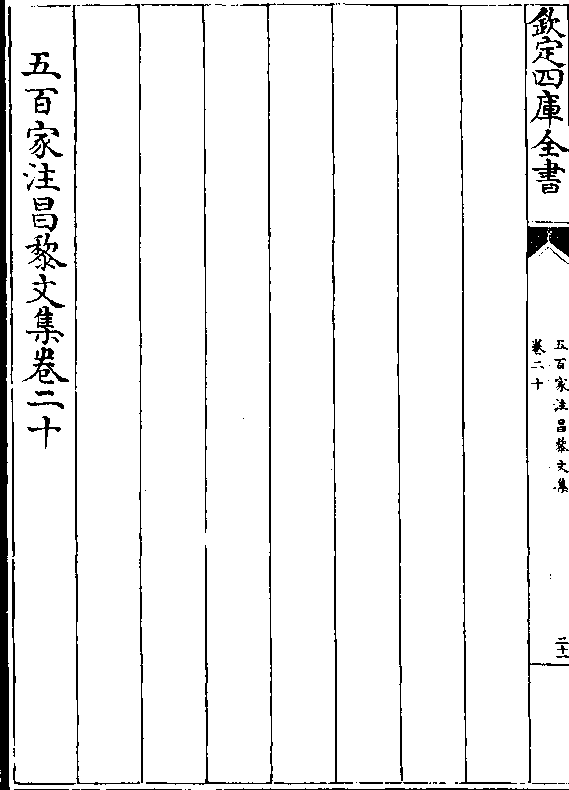 欽定四庫全書
五百家注昌黎文集
卷二十
二十一
五百家注昌黎文集卷二十